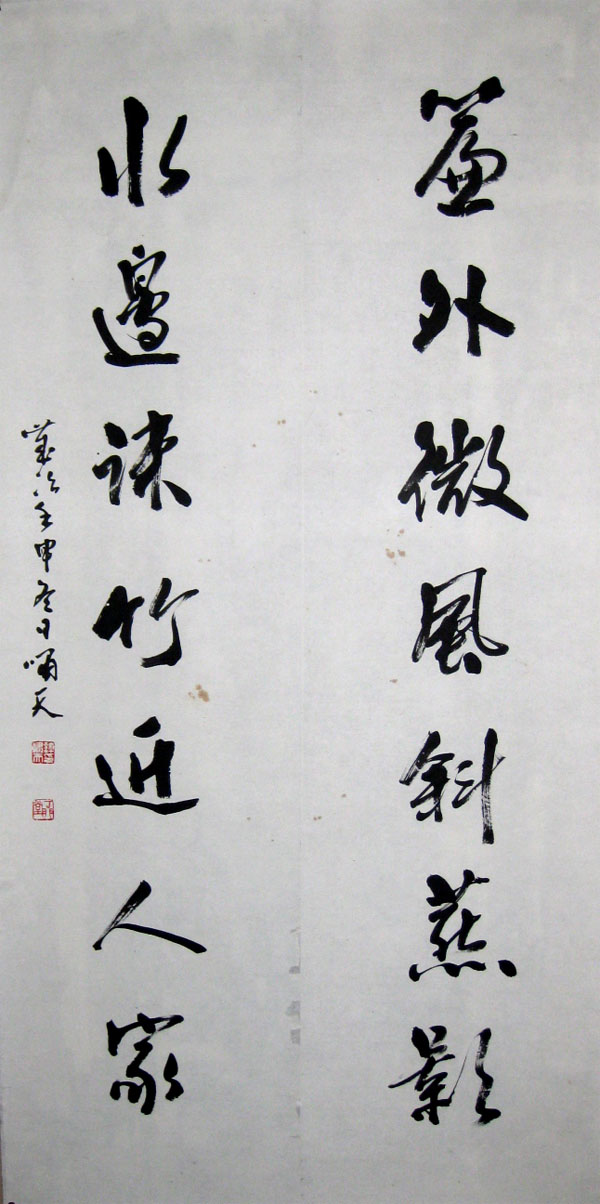 簾外微風斜燕影
水邊疎竹近人家
歲次壬申冬日嘯天